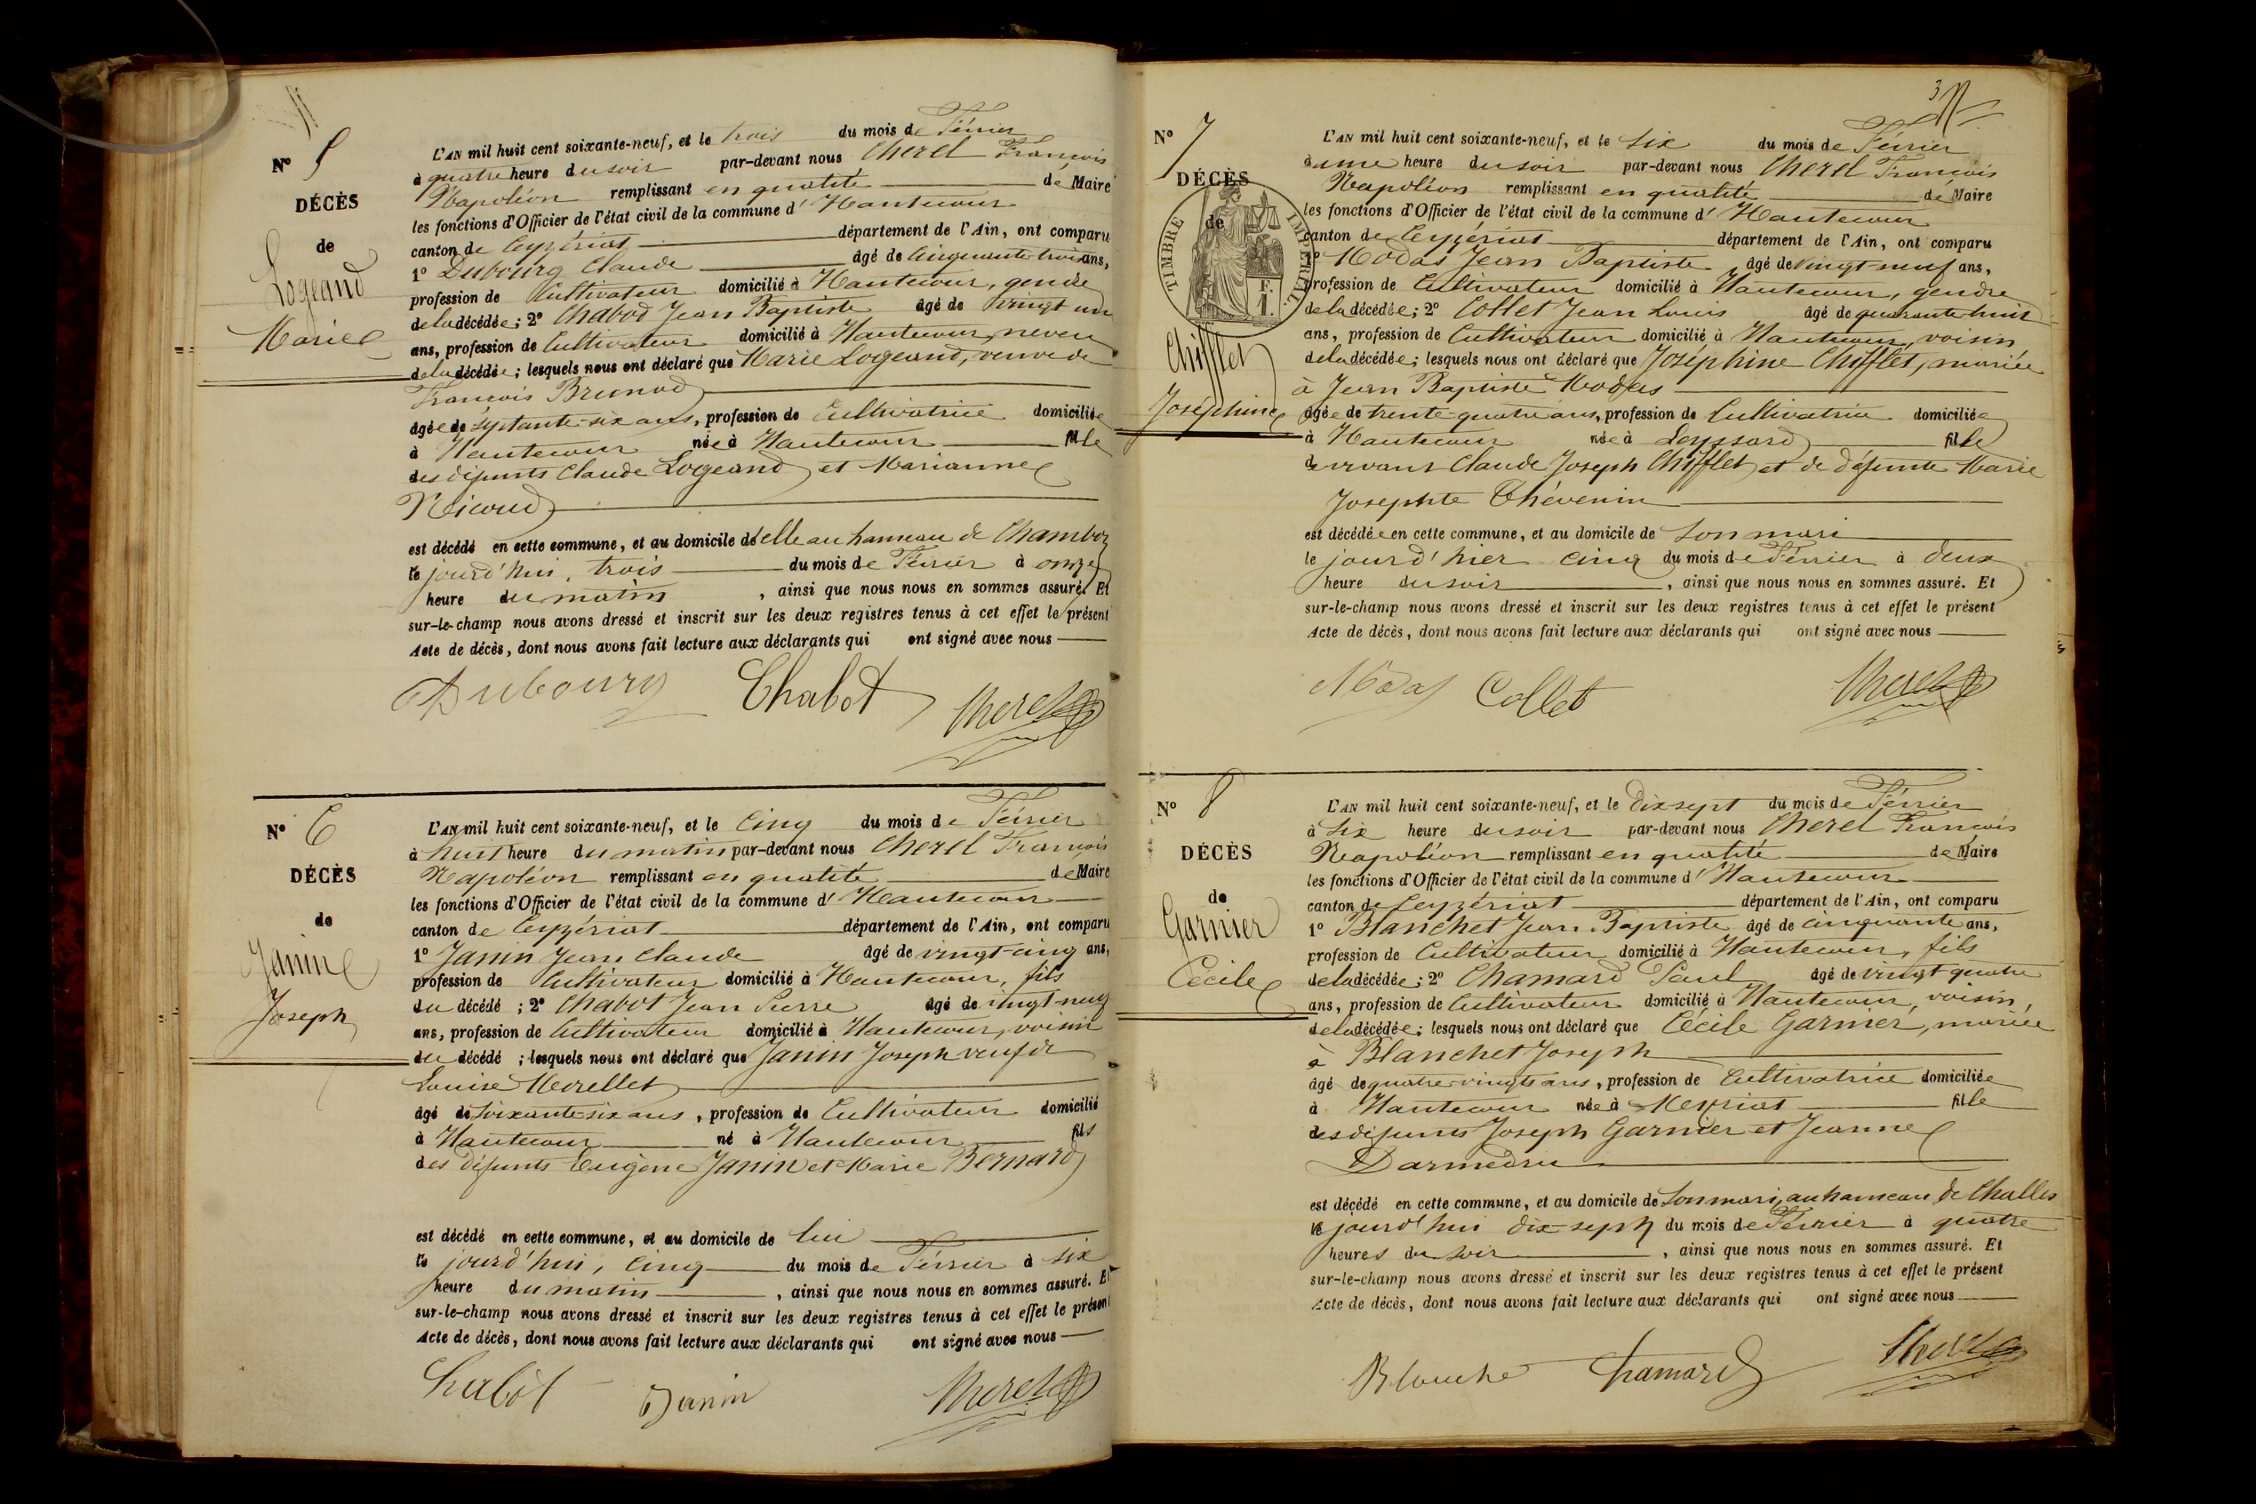 N° 5
DÉCÈS
de
Logeand
Marie
L'AN mil huit cent soixante-neuf, et le trois du mois de Février
à quatre heure du soir par-devant nous Cherel François
Napoléon remplissant en qualité de Maire
les fonctions d'Officier de l'état civil de la commune d' Hautecour
canton de Ceyzériat département de l'Ain, ont comparu
1° Dubourg Claude âgé de Cinquante trois ans,
profession de Cultivateur domicilié à Hautecour, gendre
de la décédée; 2° Chabod Jean Baptiste âgé de vingt un
ans, profession de Cultivateur domicilié à Hautecour, neveu
de la décédée; lesquels nous ont déclaré que Marie Logeand, veuve de
François Brunod
âgée de septante-six ans, profession de Cultivatrice domiciliée
à Hautecour née à Hautecour fille
des défunts Claude Logeand et Marianne
Nicoud
est décédé en cette commune, et au domicile d'elle au hameau de Chambod
le jourd'hui, trois du mois de Février à onze
heure du matin, ainsi que nous nous en sommes assuré. Et
sur-le-champ nous avons dressé et inscrit sur les deux registres tenus à cet effet le présent
Acte de décès, dont nous avons fait lecture aux déclarants qui ont signé avec nous
Dubourg Chabot Cherel
N° 6
DÉCÈS
de
Janin
Joseph
L'AN mil huit cent soixante-neuf, et le Cinq du mois de Février
à huit heure du matin par-devant nous Cherel François
Napoléon remplissant en qualité de Maire
les fonctions d'Officier de l'état civil de la commune d' Hautecour
canton de Ceyzériat département de l'Ain, ont comparu
1° Janin Jean Claude âgé de vingt-cinq ans,
profession de Cultivateur domicilié à Hautecour, fils
du décédé; 2° Chabot Jean Pierre âgé de vingt-neuf
ans, profession de Cultivateur domicilié à Hautecour, voisin
du décédé; lesquels nous ont déclaré que Janin Joseph veuf de
Louise Morellet
âgé de soixante-six ans, profession de Cultivateur domicilié
à Hautecour né à Hautecour fils
des défunts Eugène Janin et Marie Bernard
est décédé en cette commune, et au domicile de lui
le jourd'hui, cinq du mois de Février à six
heure du matin, ainsi que nous nous en sommes assuré. Et
sur-le-champ nous avons dressé et inscrit sur les deux registres tenus à cet effet le présent
Acte de décès, dont nous avons fait lecture aux déclarants qui ont signé avec nous
Chabot Janin Cherel
3
N° 7
DÉCÈS
de
TIMBRE IMPERIAL
F.
1.
Chifflet
Joséphine
L'AN mil huit cent soixante-neuf, et le Six du mois de Février
à une heure du soir par-devant nous Cherel François
Napoléon remplissant en qualité de Maire
les fonctions d'Officier de l'état civil de la commune d' Hautecour
canton de Ceyzériat département de l'Ain, ont comparu
1° Modas Jean Baptiste âgé de vingt-neuf ans,
profession de Cultivateur domicilié à Hautecour, gendre
de la décédée; 2° Collet Jean Louis âgé de quarante huit
ans, profession de Cultivateur domicilié à Hautecour, voisin
de la décédée; lesquels nous ont déclaré que Joséphine Chifflet, mariée
à Jean Baptiste Modas
âgée de trente-quatre ans, profession de Cultivatrice domiciliée
à Hautecour née à Leyssard fille
de vivant Claude Joseph Chifflet et de défunte Marie
Josephte Thévenin
est décédée en cette commune, et au domicile de son mari
le jourd'hier cinq du mois de Février à deux
heure du soir, ainsi que nous nous en sommes assuré. Et
sur-le-champ nous avons dressé et inscrit sur les deux registres tenus à cet effet le présent
Acte de décès, dont nous avons fait lecture aux déclarants qui ont signé avec nous
Modas Collet Cherel
N° 8
DÉCÈS
de
Garnier
Cécile
L'AN mil huit cent soixante-neuf, et le Dix sept du mois de Février
à Six heure du soir par-devant nous Cherel François
Napoléon remplissant en qualité de Maire
les fonctions d'Officier de l'état civil de la commune d' Hautecour
canton de Ceyzériat département de l'Ain, ont comparu
1° Blanchet Jean Baptiste âgé de cinquante ans,
profession de Cultivateur domicilié à Hautecour, fils
de la décédée; 2° Chamard Paul âgé de vingt quatre
ans, profession de Cultivateur domicilié à Hautecour, voisin,
de la décédée; lesquels nous ont déclaré que Cécile Garnier, mariée
à Blanchet Joseph
âgé de quatre-vingts ans, profession de Cultivatrice domiciliée
à Hautecour née à Meyriat fille
des défunts Joseph Garnier et Jeanne
Darmedru
est décédé en cette commune, et au domicile de son mari, au hameau de Challes
le jourd'hui dix sept du mois de Février à quatre
heures du soir, ainsi que nous nous en sommes assuré. Et
sur-le-champ nous avons dressé et inscrit sur les deux registres tenus à cet effet le présent
Acte de décès, dont nous avons fait lecture aux déclarants qui ont signé avec nous
Blanche Chamard Cherel